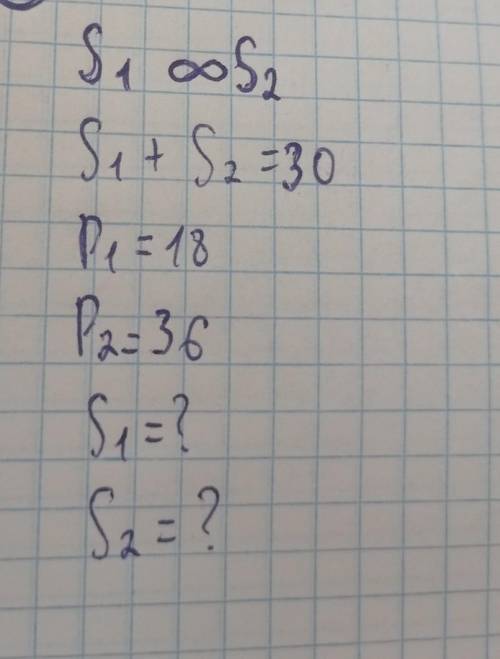 S₁ ∞ S₂
S₁ + S₂ = 30
P₁ = 18
P₂ = 36
S₁ = ?
S₂ = ?